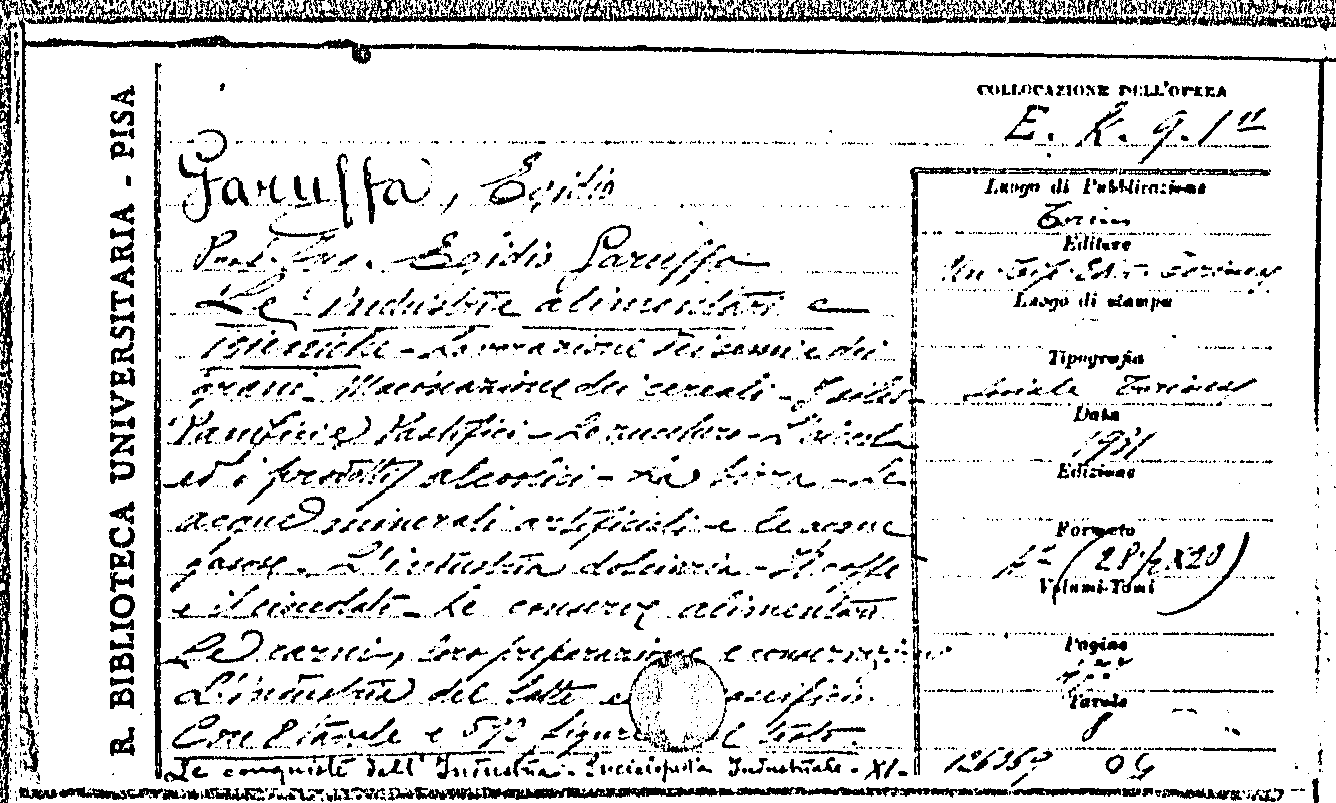 R. BIBLIOTECA UNIVERSITARIA - PISA
COLLOCAZIONE DELL'OPERA
E. k. 9. 1
Garuffa, Egidio
Prof. Ing. Egidio Garuffa
Le industrie alimentari e
- Lavorazione dei semi e dei
grani - Macinazione dei cereali -
Panifici e Pastifici - Lo zucchero - L'alcool
ed i prodotti alcoolici - La birra - Le
acque minerali artificiali e le acque
gasose - L'industria dolciaria - Il caffè
e il cioccolato - Le conserve alimentari
Le carni, loro preparazione e conservazione
L'industria del latte e caseificio.
Con 8 tavole e 593 figure testo.
Le conquiste dell'Industria - Enciclopedia Industriale - XI -
Luogo di Pubblicazione
Torino
Editore
Un. Tip. Edit. Torinese
Luogo di stampa
Tipografia
Sociale Torinese
Data
1931
Edizione
Formato
(28½ x 20)
Volumi-Tomi
Pagine
Tavole
8
126359 OG